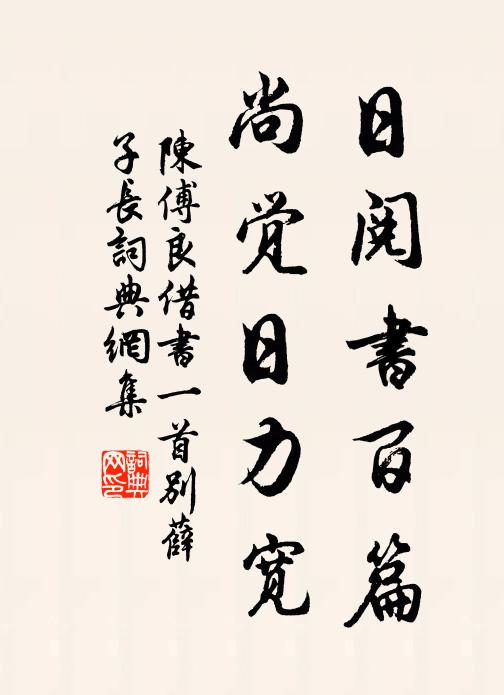 日阅書百篇
尚觉日力宽
陳傅良借書一首别薛
子長詞典網集
詞典
网印